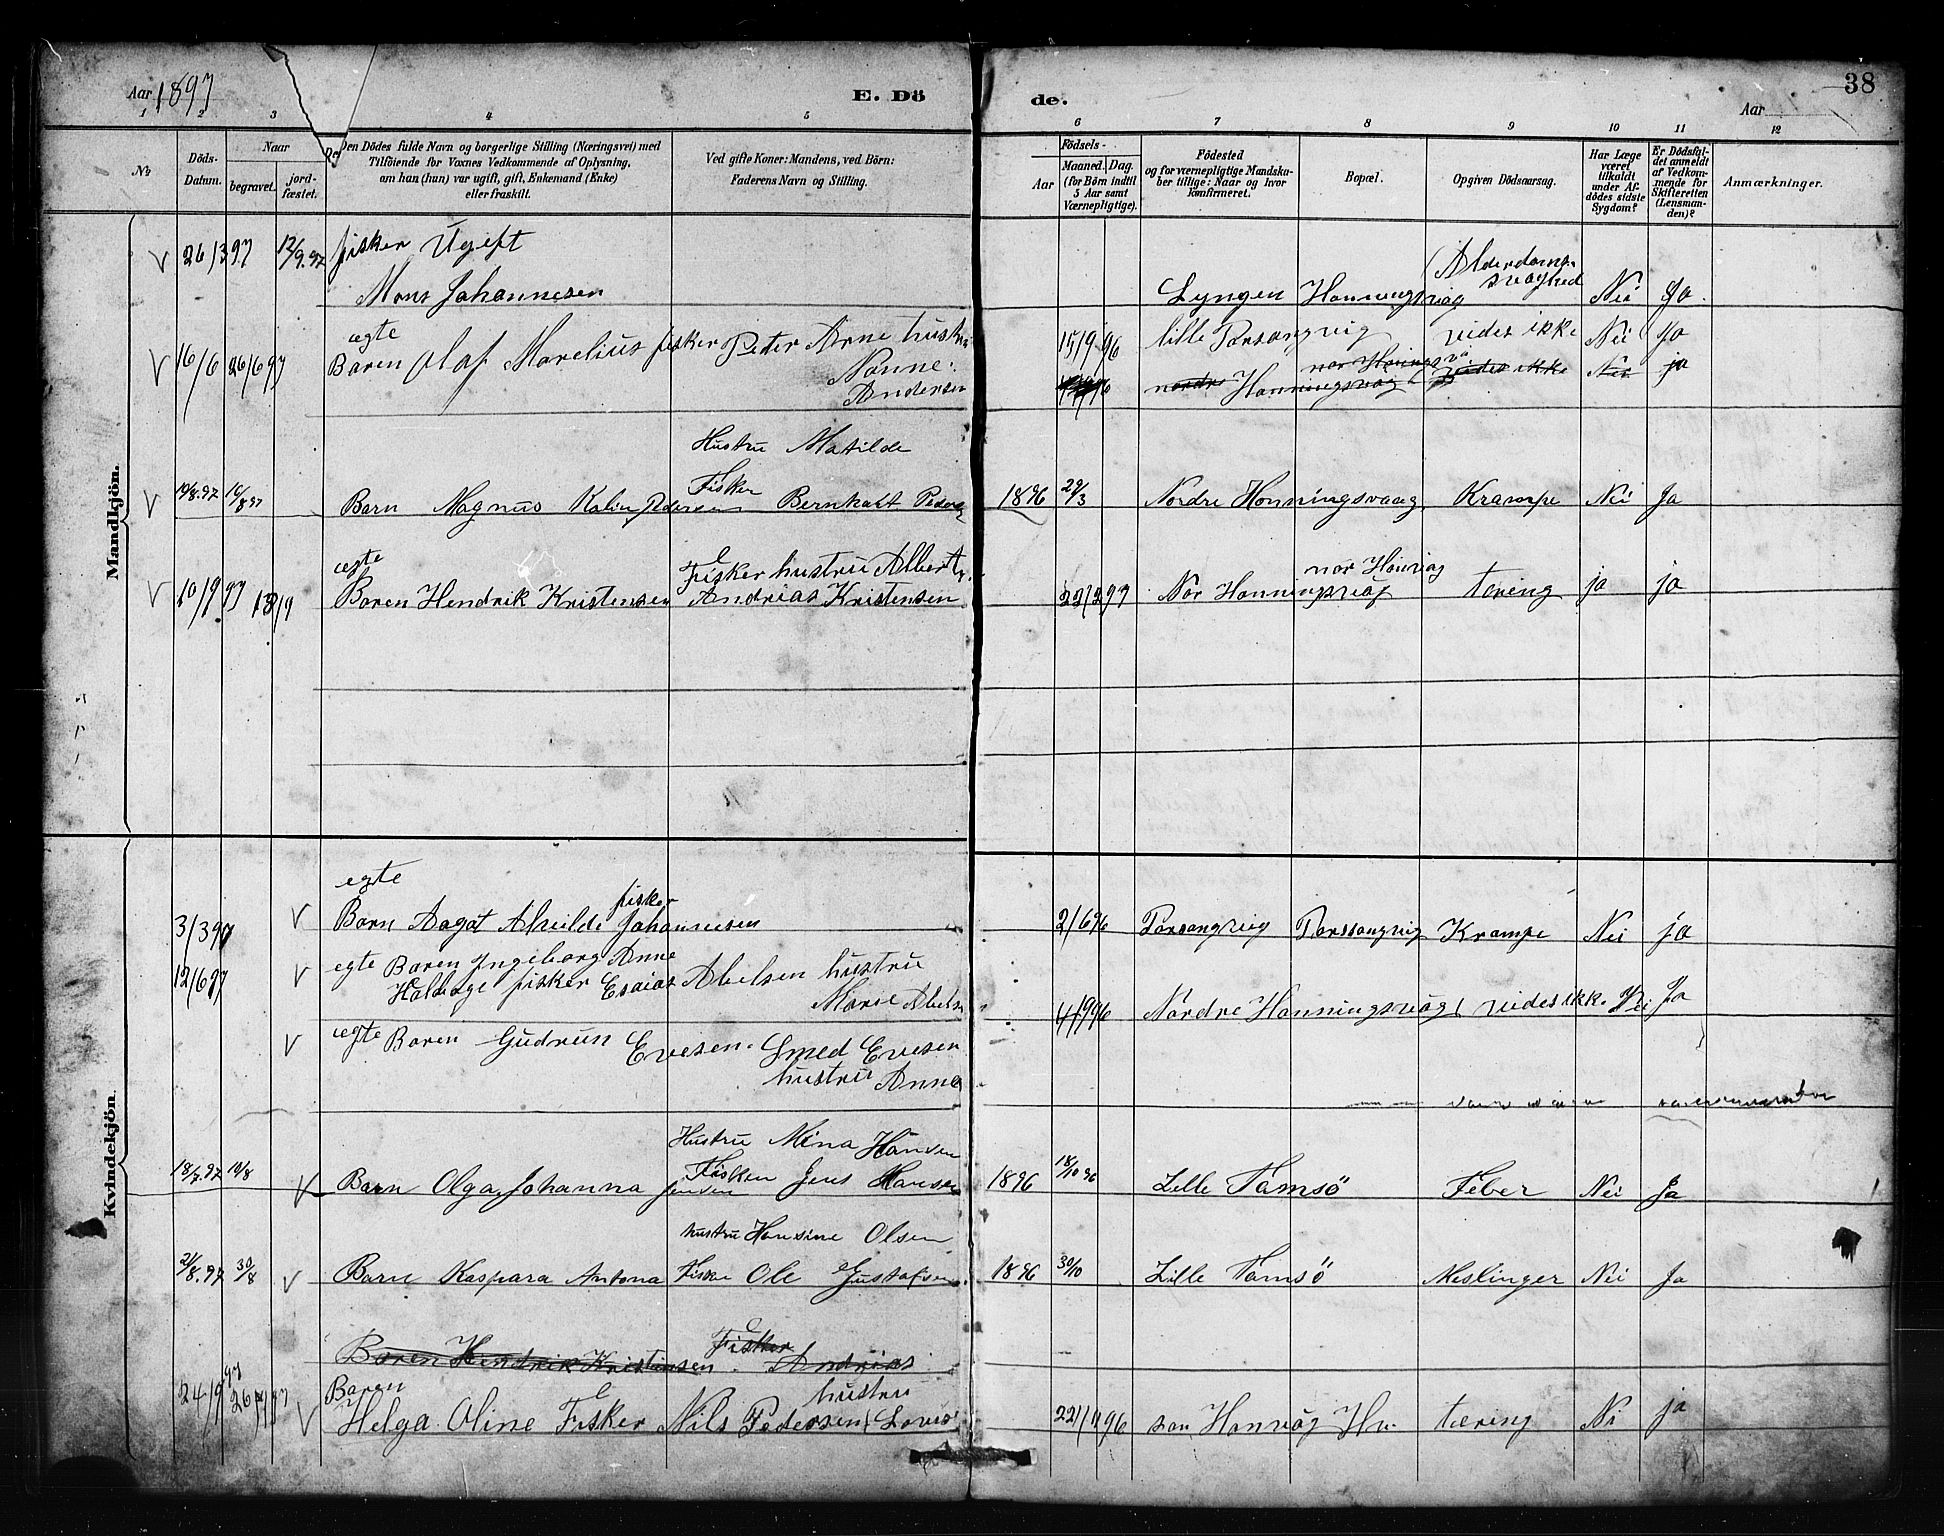 Aar 1897
E. Dö
de.
Aar
38
1 2 3 4 5 6 7 8 9 10 11 12
No
Döds-
Datum.
Naar
begravet.
jord-
fæstet.
Den Dödes fulde Navn og borgerlige Stilling (Næringsvei) med
Tilföiende for Voxnes Vedkommende af Oplysning,
om han (hun) var ugift, gift, Enkemand (Enke)
eller fraskilt.
Ved gifte Koner: Mandens, ved Börn:
Faderens Navn og Stilling.
Födsels-
Aar
Maaned. Dag.
(for Börn indtil
5 Aar samt
Værnepligtige).
Födested
og for værnepligtige Mandska-
ber tillige: Naar og hvor
konfirmeret.
Bopæl.
Opgiven Dödsaarsag.
Har Læge
været
tilkaldt
under Af-
dödes sidste
Sygdom?
Er Dödsfal-
det anmeldt
af Vedkom-
mende for
Skifteretten
(Lensman-
den)?
Anmærkninger.
Mandkjön.
V 26/3 97 12/9.97 fisker Ugift
Mons Johannesen
Lyngen Honningsvåg Alderdoms
svaghed Nei Ja.
V 16/6 26/6 97 egte
Baren Olaf Marelius fisker Peter Arne hustru
Nanne
Andersen
15/9 96 lille Porsangvig vides ikke Nei Ja
nordre Honningsvåg vides ikke Nei ja
Hustru Matilde
V 10/8.97 16/8 97 Barn Magnus Kalin Pedersen Fisker Bernhart
1896 29/3 Nordre Honningsvaag Krampe Nei Ja
V 10/9 97 13/9 egte
Baren Hendrik Kristensen Fisker hustru Albert
Andrias Kristensen
22/2 97 Nor Honningsvåg nor Honvåg tæring ja ja
Kvindekjön.
3/3 97 V egte
Barn Aagot Alvilde fisker Johannesen
2/6 96 Porsangvig Porssangvig Krampe Nei ja
12/6 97 V egte Baren Ingeborg Anne
fisker Esaias Abelsen hustru
Marie
4/9 96 Nordre Honningsvåg vides ikk. Nei Ja
V egte Baren Gudrun Evesen. Smed Evesen
hustru Anne
Hustru Mina Hansen
18/7.97 V Barn Olga Johanna Jensen Fisker Jens Hansen
1896 18/10 96 Lille Tamsö Feber Nei Ja
hustru Hansine Olsen
21/8.97 30/8 V Barn Kaspara Antona Fisker Ole Gustafsen
1896 30/10 Lille Tamsö Meslinger Nei Ja
Baren Hendrik Kristensen Fisker Andrias
24/9 97 26/9 97 V Baren
Helga Oline Fisker Nils Pedersen hustru Lovis
22/1 96 Honvåg tæring Ni ja